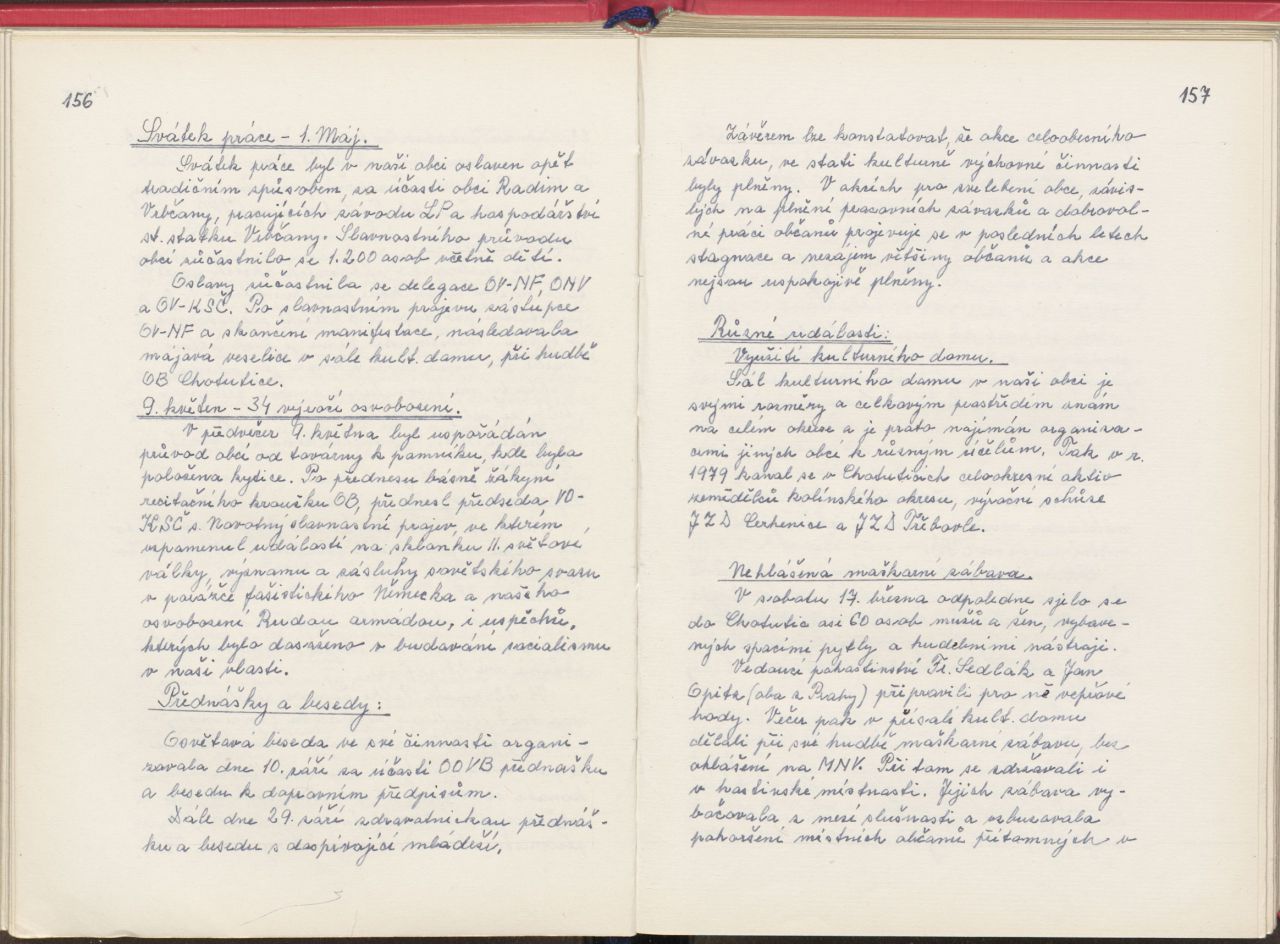 156
Svátek práce - 1. Máj.
Svátek práce byl v naší obci oslaven opět
tradičním způsobem, za účasti obcí Radim a
Vrbčany, pracujících závodu LP a hospodářství
st. statku Vrbčany. Slavnostního průvodu
obcí zúčastnilo se 1.200 osob včetně dětí.
Oslavy zúčastnila se delegace OV-NF, ONV
a OV-KSČ. Po slavnostním projevu zástupce
OV-NF a skončení manifestace, následovala
májová veselice v sále kult. domu, při hudbě
OB Chotutice.
9. květen - 34 výročí osvobození.
V předvečer 9. května byl uspořádán
průvod obcí od továrny k pomníku, kde byla
položena kytice. Po přednesu básně žákyní
recitačního kroužku OB, přednesl předseda VO-
KSČ s. Novotný slavnostní projev, ve kterém
vzpomenul událostí na sklonku II. světové
války, významu a zásluhy sovětského svazu
v porážce fašistického Německa a našeho
osvobození Rudou armádou, i uspěchů,
kterých bylo dosaženo v budování socialismu
v naší vlasti.
Přednášky a besedy:
Osvětová beseda ve své činnosti organi-
zovala dne 10. září za účasti OOVB přednášku
a besedu k dopravním předpisům.
Dále dne 29. září zdravotnickou přednáš-
ku a besedu s dospívající mládeží.
157
Závěrem lze konstatovat, že akce celoobecního
závazku, ve stati kulturně výchovné činnosti
byly plněny. V akcích pro zvelebení obce, závis-
lých na plnění pracovních závazků a dobrovol-
né práci občanů projevuje se v posledních letech
stagnace a nezájem většiny občanů a akce
nejsou uspokojivě plněny.
Různé události:
Využití kulturního domu.
Sál kulturního domu v naší obci je
svými rozměry a celkovým prostředím znám
na celém okrese a je proto najímán organiza-
cemi jiných obcí k různým účelům. Tak v r.
1979 konal se v Chotuticích celookresní aktiv
zemědělců kolínského okresu, výroční schůze
JZD Cerhenice a JZD Třebovle.
Nehlášená maškarní zábava.
V sobotu 17. března odpoledne sjelo se
do Chotutic asi 60 osob mužů a žen, vybave-
ných spacími pytly a hudebními nástroji.
Vedoucí pohostinství Fr. Sedlák a Jan
Opitz (oba z Prahy) připravili pro ně vepřové
hody. Večer pak v přísálí kult. domu
dělali při své hudbě maškarní zábavu, bez
ohlášení na MNV. Při tom se zdržovali i
v hostinské místnosti. Jejich zábava vy-
bočovala z mezí slušnosti a vzbuzovala
pohoršení místních občanů přítomných v